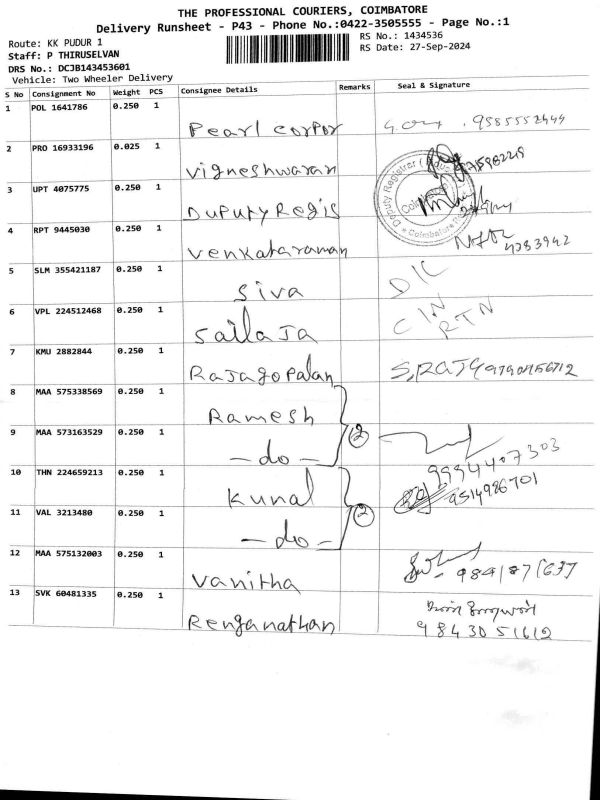 THE PROFESSIONAL COURIERS, COIMBATORE
Delivery Runsheet - P43 - Phone No.:0422-3505555 - Page No.:1
Route: KK PUDUR 1
RS No.: 1434536
Staff: P THIRUSELVAN
RS Date: 27-Sep-2024
DRS No.: DCJB143453601
Vehicle: Two Wheeler Delivery
S No Consignment No Weight PCS Consignee Details Remarks Seal & Signature
1 POL 1641786 0.250 1 Pearl Corpor
2 PRO 16933196 0.025 1 Vigneshwaran
3 UPT 4075775 0.250 1 Duputy Regis
Deputy Registrar
Coimbatore
4 RPT 9445030 0.250 1 Venkataraman
5 SLM 355421187 0.250 1 Siva D/C
6 VPL 224512468 0.250 1 Saila Ja C/N RTN
7 KMU 2882844 0.250 1 Rajagopalan
8 MAA 575338569 0.250 1 Ramesh
9 MAA 573163529 0.250 1 - do - 2 9994407303
10 THN 224659213 0.250 1 Kunal 9514986701
11 VAL 3213480 0.250 1 - do - 2
12 MAA 575132003 0.250 1 Vanitha
13 SVK 60481335 0.250 1 Renganathan 9843051612